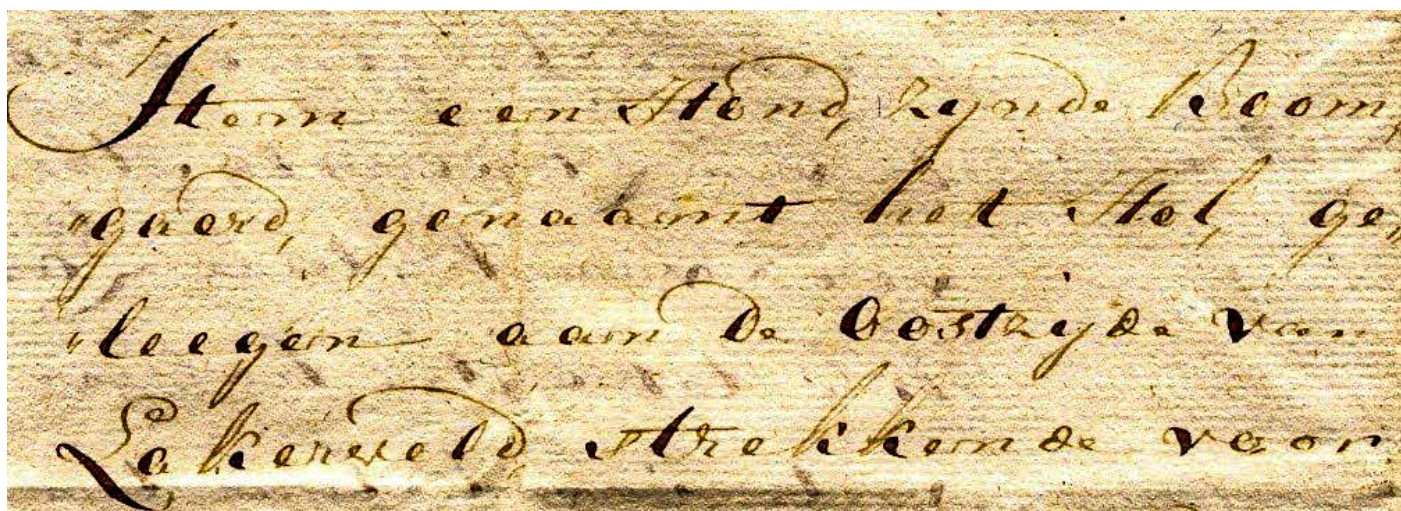 Item een Hond, zynde Boom,
"gaerd, genaamt het Hol, ge,
"leegen aan de Oostzyde van
Lakerveld, strekkende voor